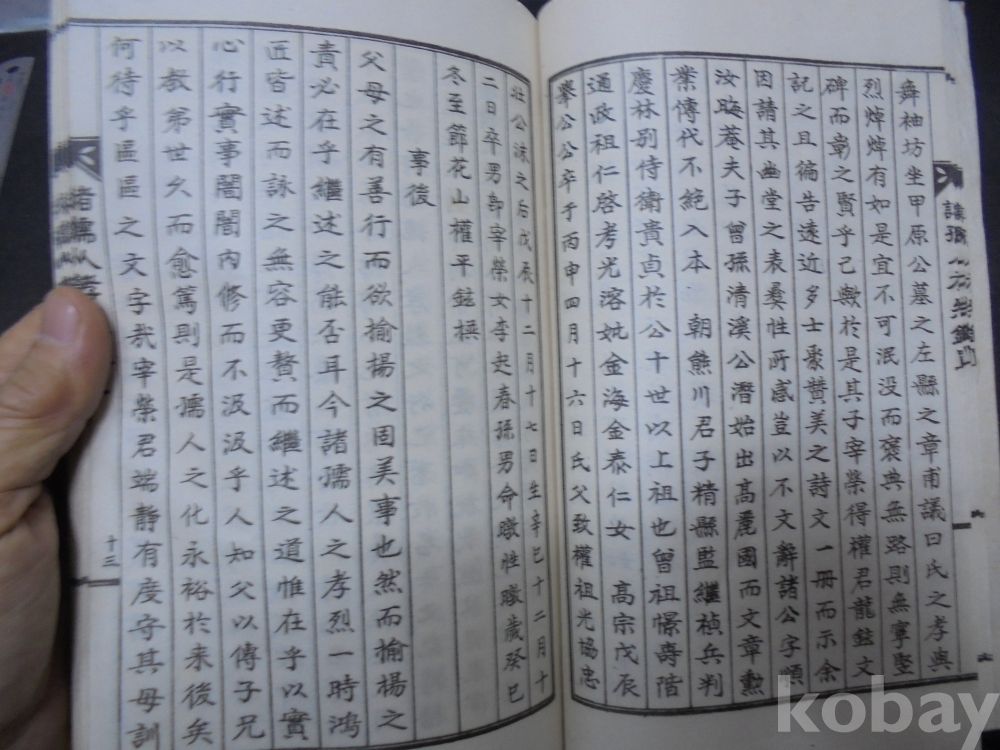 舞袖坊坐甲原公墓之左縣之章甫議曰氏之孝與
烈焯焯有如是宜不可泯没而褒典無路則無寧竪
碑而彰之賢乎已歟於是其子宰榮得權君龍鉉文
記之且徧告遠近多士裒賛美之詩文一冊而示余
因請其幽堂之表彜性所感豈以不文辭諸公字順
汝晦菴夫子曾孫清溪公潜始出高麗國而文章勲
業傳代不絶入本 朝熊川君子精縣監繼楨兵判
慶林别侍衛貴貞於公十世以上祖也曾祖憬壽階
通政祖仁啓考光溶妣金海金泰仁女 高宗戊辰
擧公公卒于丙申四月十六日氏父致權祖光協忠
壯公沫之后戊辰十二月十七日生辛巳十二月十
二日卒男即宰榮女李吏春孫男命暾性暾歲癸巳
冬至節花山權平鉉撰
事後
父母之有善行而欲揄揚之固美事也然而揄揚之
責必在乎繼述之能否耳今諸孺人之孝烈一時鴻
匠皆述而詠之無容更贅而繼述之道惟在乎以實
心行實事闇闇内修而不汲汲乎人知父以傳子兄
以教弟世久而愈篤則是孺人之化永裕於来後矣
何待乎區區之文字㢤宰榮君端靜有度守其母訓
十三
kobay